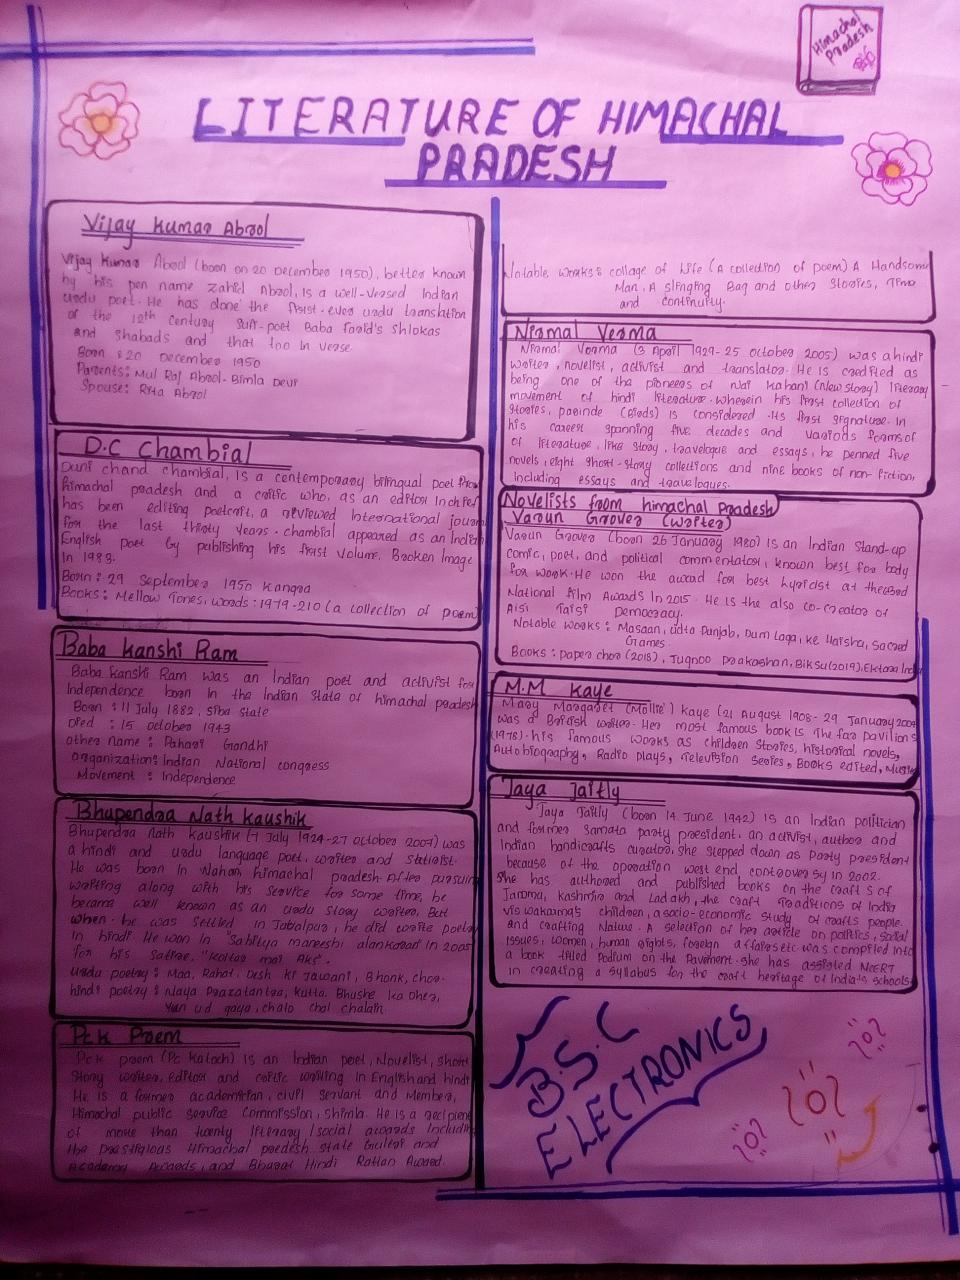 Himachal
Pradesh
LITERATURE OF HIMACHAL
PRADESH
Vijay Kumar Abrol
Vijay Kumar Abrol (born on 20 December 1950), better known
by his pen name Zahid Abrol, is a well-versed Indian
urdu poet. He has done the first-ever urdu translation
of the 12th century Sufi-poet Baba Farid's Shlokas
and Shabads and that too in verse
Born : 20 December 1950
Parents: Mul Raj Abrol-Bimla Devi
Spouse: Rita Abrol
D.C Chambial
Duni chand chambial, is a contemporary bilingual poet from
himachal pradesh and a critic who, as an editor in chief
has been editing poetcrit, a reviewed International journ
for the last thirty years. chambial appeared as an Indian
English poet by publishing his first volume. Broken Image
in 1983.
Born : 29 September 1950 Kangra
Books: Mellow Tones, words : 1979-210 (a collection of poem)
Baba kanshi Ram
Baba Kanshi Ram was an Indian poet and activist for
Independence born in the Indian State of himachal pradesh
Born : 11 July 1882, Siba State
Died : 15 october 1943
other name : Pahari Gandhi
organization: Indian National congress
Movement : Independence
Bhupendra Nath kaushik
Bhupendra Nath Kaushik (7 July 1924-27 october 2007) was
a hindi and urdu language poet, writer and Satirist.
He was born in Nahan, himachal pradesh. After pursuing
writing along with his service for some time, he
became well known as an urdu story writer. But
when he was settled in Jabalpur, he did write poetry
in hindi. He won "Sahitya maneeshi alankaran" in 2005
for his Satire, "Koltar mai Aks".
urdu poetry : Maa, Rahat, Desh ki Jawani, Bhonk, chor
hindi poetry : Naya Prazatantra, kutta. Bhushe ka Dher,
Yun ud gaya, chalo chal chalain
Pck Poem
Pck poem (Pc Katoch) is an Indian poet, Novelist, short
Story writer, editor and critic writing in English and hindi
He is a former academician, civil servant and Member,
Himachal public service commission, shimla. He is a recipient
of more than twenty literary/social awards including
the prestigious Himachal pradesh state Guleri and
Academy Awards, and Bharat Hindi Rattan Award.
Notable works : collage of Life (A collection of poem) A Handsome
Man, A slinging Bag and other Stories, Time
and continuity.
Nirmal Verma
Nirmal Verma (3 April 1929-25 october 2005) was a hindi
writer, novelist, activist and translator. He is credited as
being one of the pioneers of Nai Kahani (New Story) literary
movement of hindi literature. Wherein his first collection of
stories, parinde (Birds) is considered its first signature. In
his career spanning five decades and various forms of
of literature, like story, travelogue and essays, he penned five
novels, eight short-story collections and nine books of non-fiction,
including essays and travelogues.
Novelists from himachal pradesh
Varun Grover (Writer)
Varun Grover (born 26 January 1980) is an Indian Stand-up
comic, poet, and political commentator, known best for body
for work. He won the award for best lyricist at the 63rd
National Film Awards in 2015. He is the also co-creator of
Aisi Taisi Democracy.
Notable works : Masaan, udta Punjab, Dum Laga, ke Haisha, Sacred
Games.
Books : Paper chor (2018), Jugnoo prakashan, Biksu (2019), Ektara India
M.M Kaye
Mary Margaret (Mollie') Kaye (21 August 1908-29 January 2004
was a British writer. Her most famous book is The far pavilions
(1978). his famous works as children Stories, historical novels,
Autobiography, Radio plays, Television Series, Books edited,
Jaya Jaitly
Jaya Jaitly (born 14 June 1942) is an Indian politician
and former Samata party president, an activist, author and
Indian handicrafts curator. she stepped down as Party president
because of the operation west end controversy in 2002.
She has authored and published books on the craft s of
Jammu, kashmir and Ladakh, the craft Traditions of India
viswakarma's children, a socio-economic study of crafts people
and crafting Nature. A selection of her article on politics, social
issues, women, human rights, foreign affairs etc was compiled into
a book titled Podium on the Pavement. she has assisted NCERT
in creating a syllabus for the craft heritage of India's schools
B.S.C
ELECTRONICS